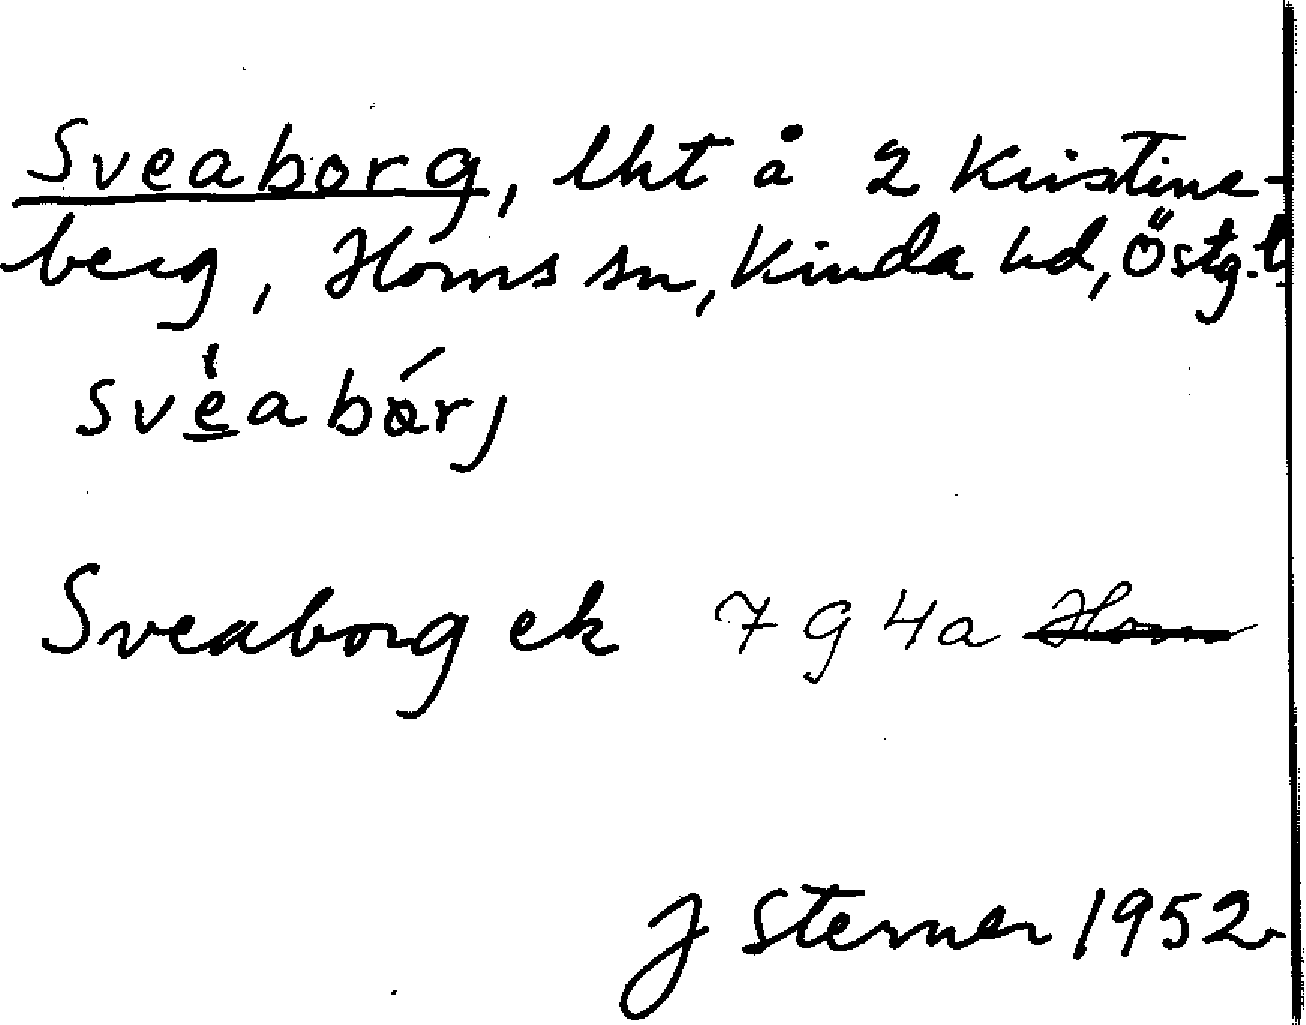 Sveaborg, lht å 2 Kristine-
berg, Horns sn, Kinda hd, Östg. l
svèabárj
Sveaborg ek 7 9 4a Horn
J Sterner 1952